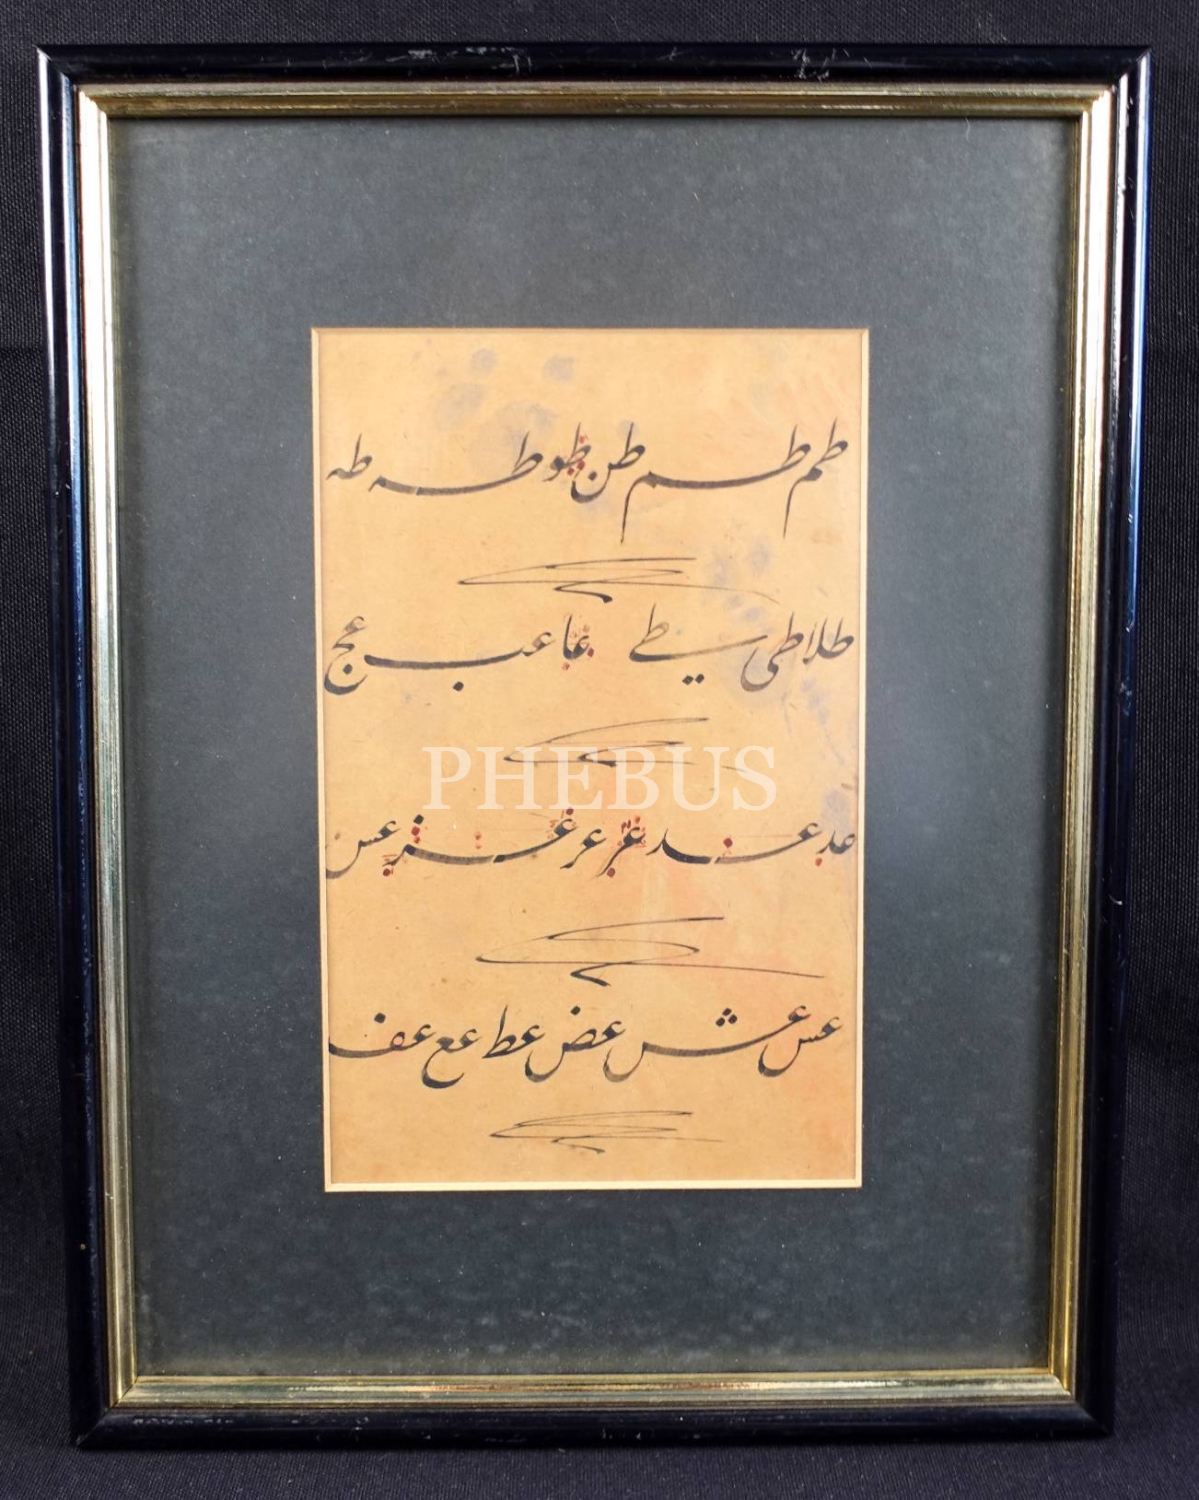 طم طم طن طو طه طه
طلا طی طے عا عب عج
عد عد عر عر عر عس
عس عش عض عط عع عف
PHEBUS